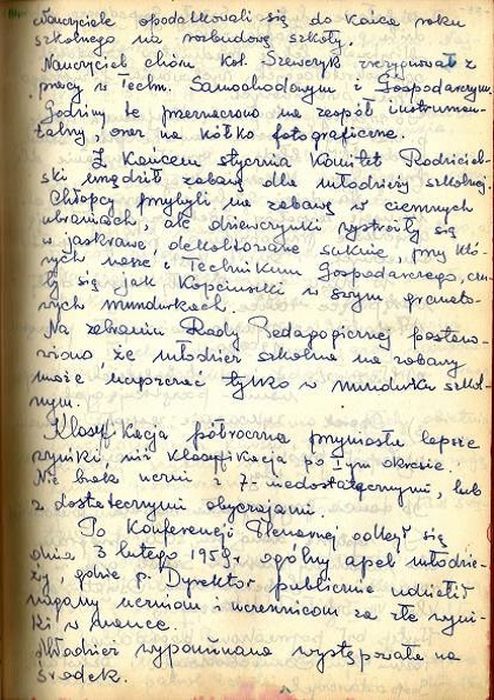 Nauczyciele opodatkowali się do końca roku
szkolnego na rozbudowę szkoły.
Nauczyciel chóru Kol. Szewczyk zrezygnował z
pracy w Techn. Samochodowym i Gospodarczym.
Godziny te przeznaczono na zespół instrumen-
talny, oraz na kółko fotograficzne.
Z końcem stycznia Komitet Rodziciel-
ski urządził zabawę dla młodzieży szkolnej.
Chłopcy przybyli na zabawę w ciemnych
ubraniach, ale dziewczynki wystroiły się
w jaskrawe, dekoltowane suknie, przy któ-
rych nasze i Technikum Gospodarczego, czu-
ły się jak Kopciuszki w swym granato-
wych mundurkach.
Na zebraniu Rady Pedagogicznej postano-
wiono, że młodzież szkolna na zabawy
może uczęszczać tylko w mundurku szkol-
nym.
Klasyfikacja półroczna przyniosła lepsze
wyniki, niż klasyfikacja po I-ym okresie.
Nie brak uczni z 7-ma niedostatecznymi, lub
z dostatecznymi obyczajami.
Po Konferencji Plenarnej odbył się
dnia 3 lutego 1959 r. ogólny apel młodzie-
ży, gdzie p. Dyrektor publicznie udzielił
nagany uczniom i uczennicom za złe wyni-
ki w nauce.
Młodzież wypominana występowała na
środek.